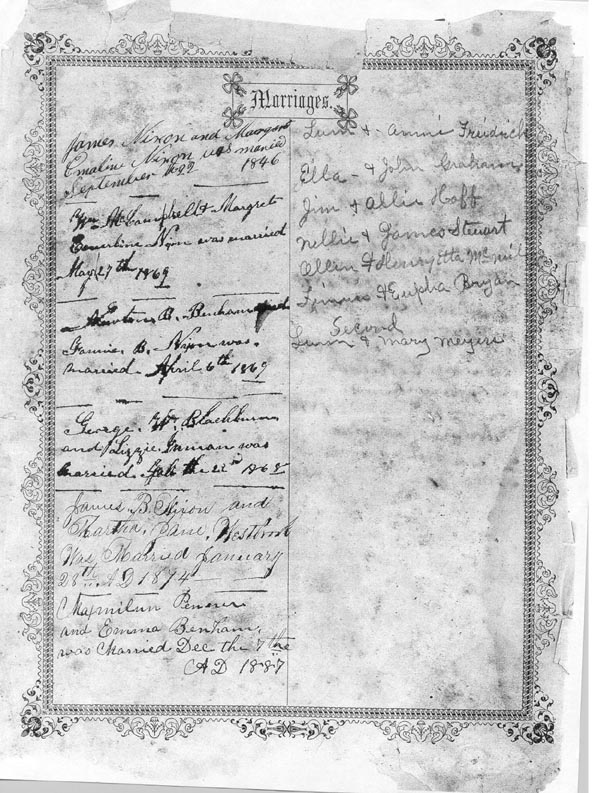 Marriages.
James Nixon and Margaret
Emaline Nixon was maried
September 1846
Wm M. Campbell & Margret
Emerline Nixon was married
May 27th 1869
Newton B. Benham and
Fannie B. Nixon was
married April 6th 1869
George W. Blackburn
and Lizzie Inman was
married the 1868
James B. Nixon and
Martha Jane Westbrook
Was Married January
28th AD 1874
Maxmilun
and Emma Benham
was Married Dec the 7the
AD 1887
Lum & Annie Fredrick
Ella - & John Graham
Jim & Allie Hoff
Nellie & James Stewart
Allen & Henryetta McNeil
& Eupha Bryan
Second
Lum & Mary Meyers